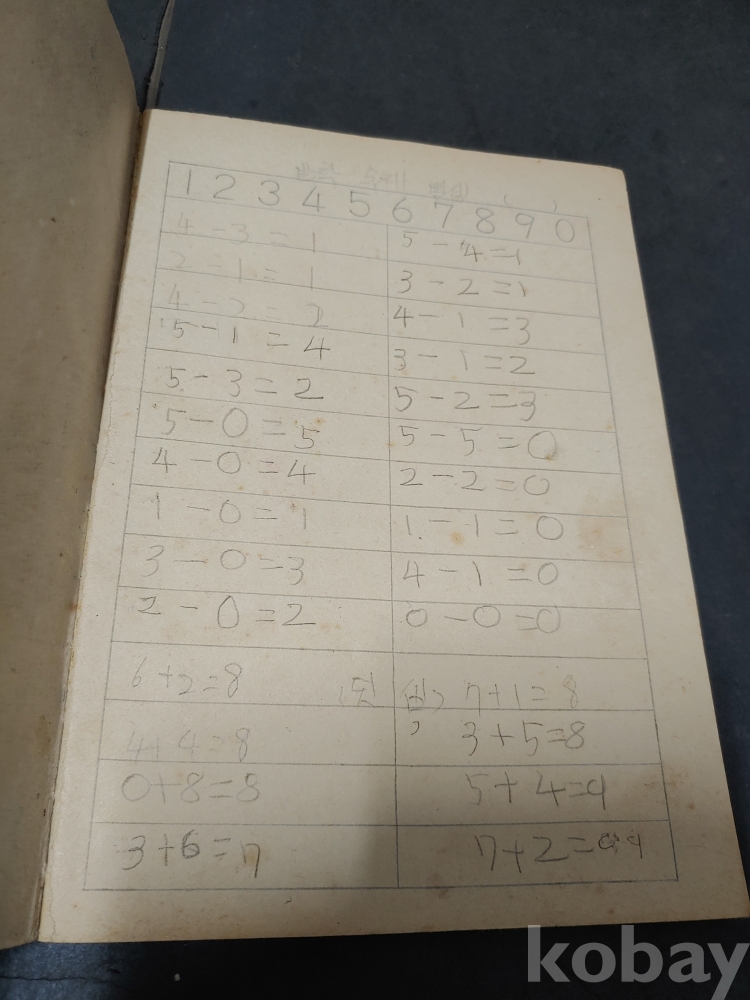 1 2 3 4 5 6 7 8 9 0
4 - 3 = 1 5 - 4 = 1
2 - 1 = 1 3 - 2 = 1
4 - 2 = 2 4 - 1 = 3
5 - 1 = 4 3 - 1 = 2
5 - 3 = 2 5 - 2 = 3
5 - 0 = 5 5 - 5 = 0
4 - 0 = 4 2 - 2 = 0
1 - 0 = 1 1 - 1 = 0
3 - 0 = 3 4 - 1 = 0
2 - 0 = 2 0 - 0 = 0
6 + 2 = 8 7 + 1 = 8
4 + 4 = 8 3 + 5 = 8
0 + 8 = 8 5 + 4 = 9
3 + 6 = 7 7 + 2 = 9
kobay